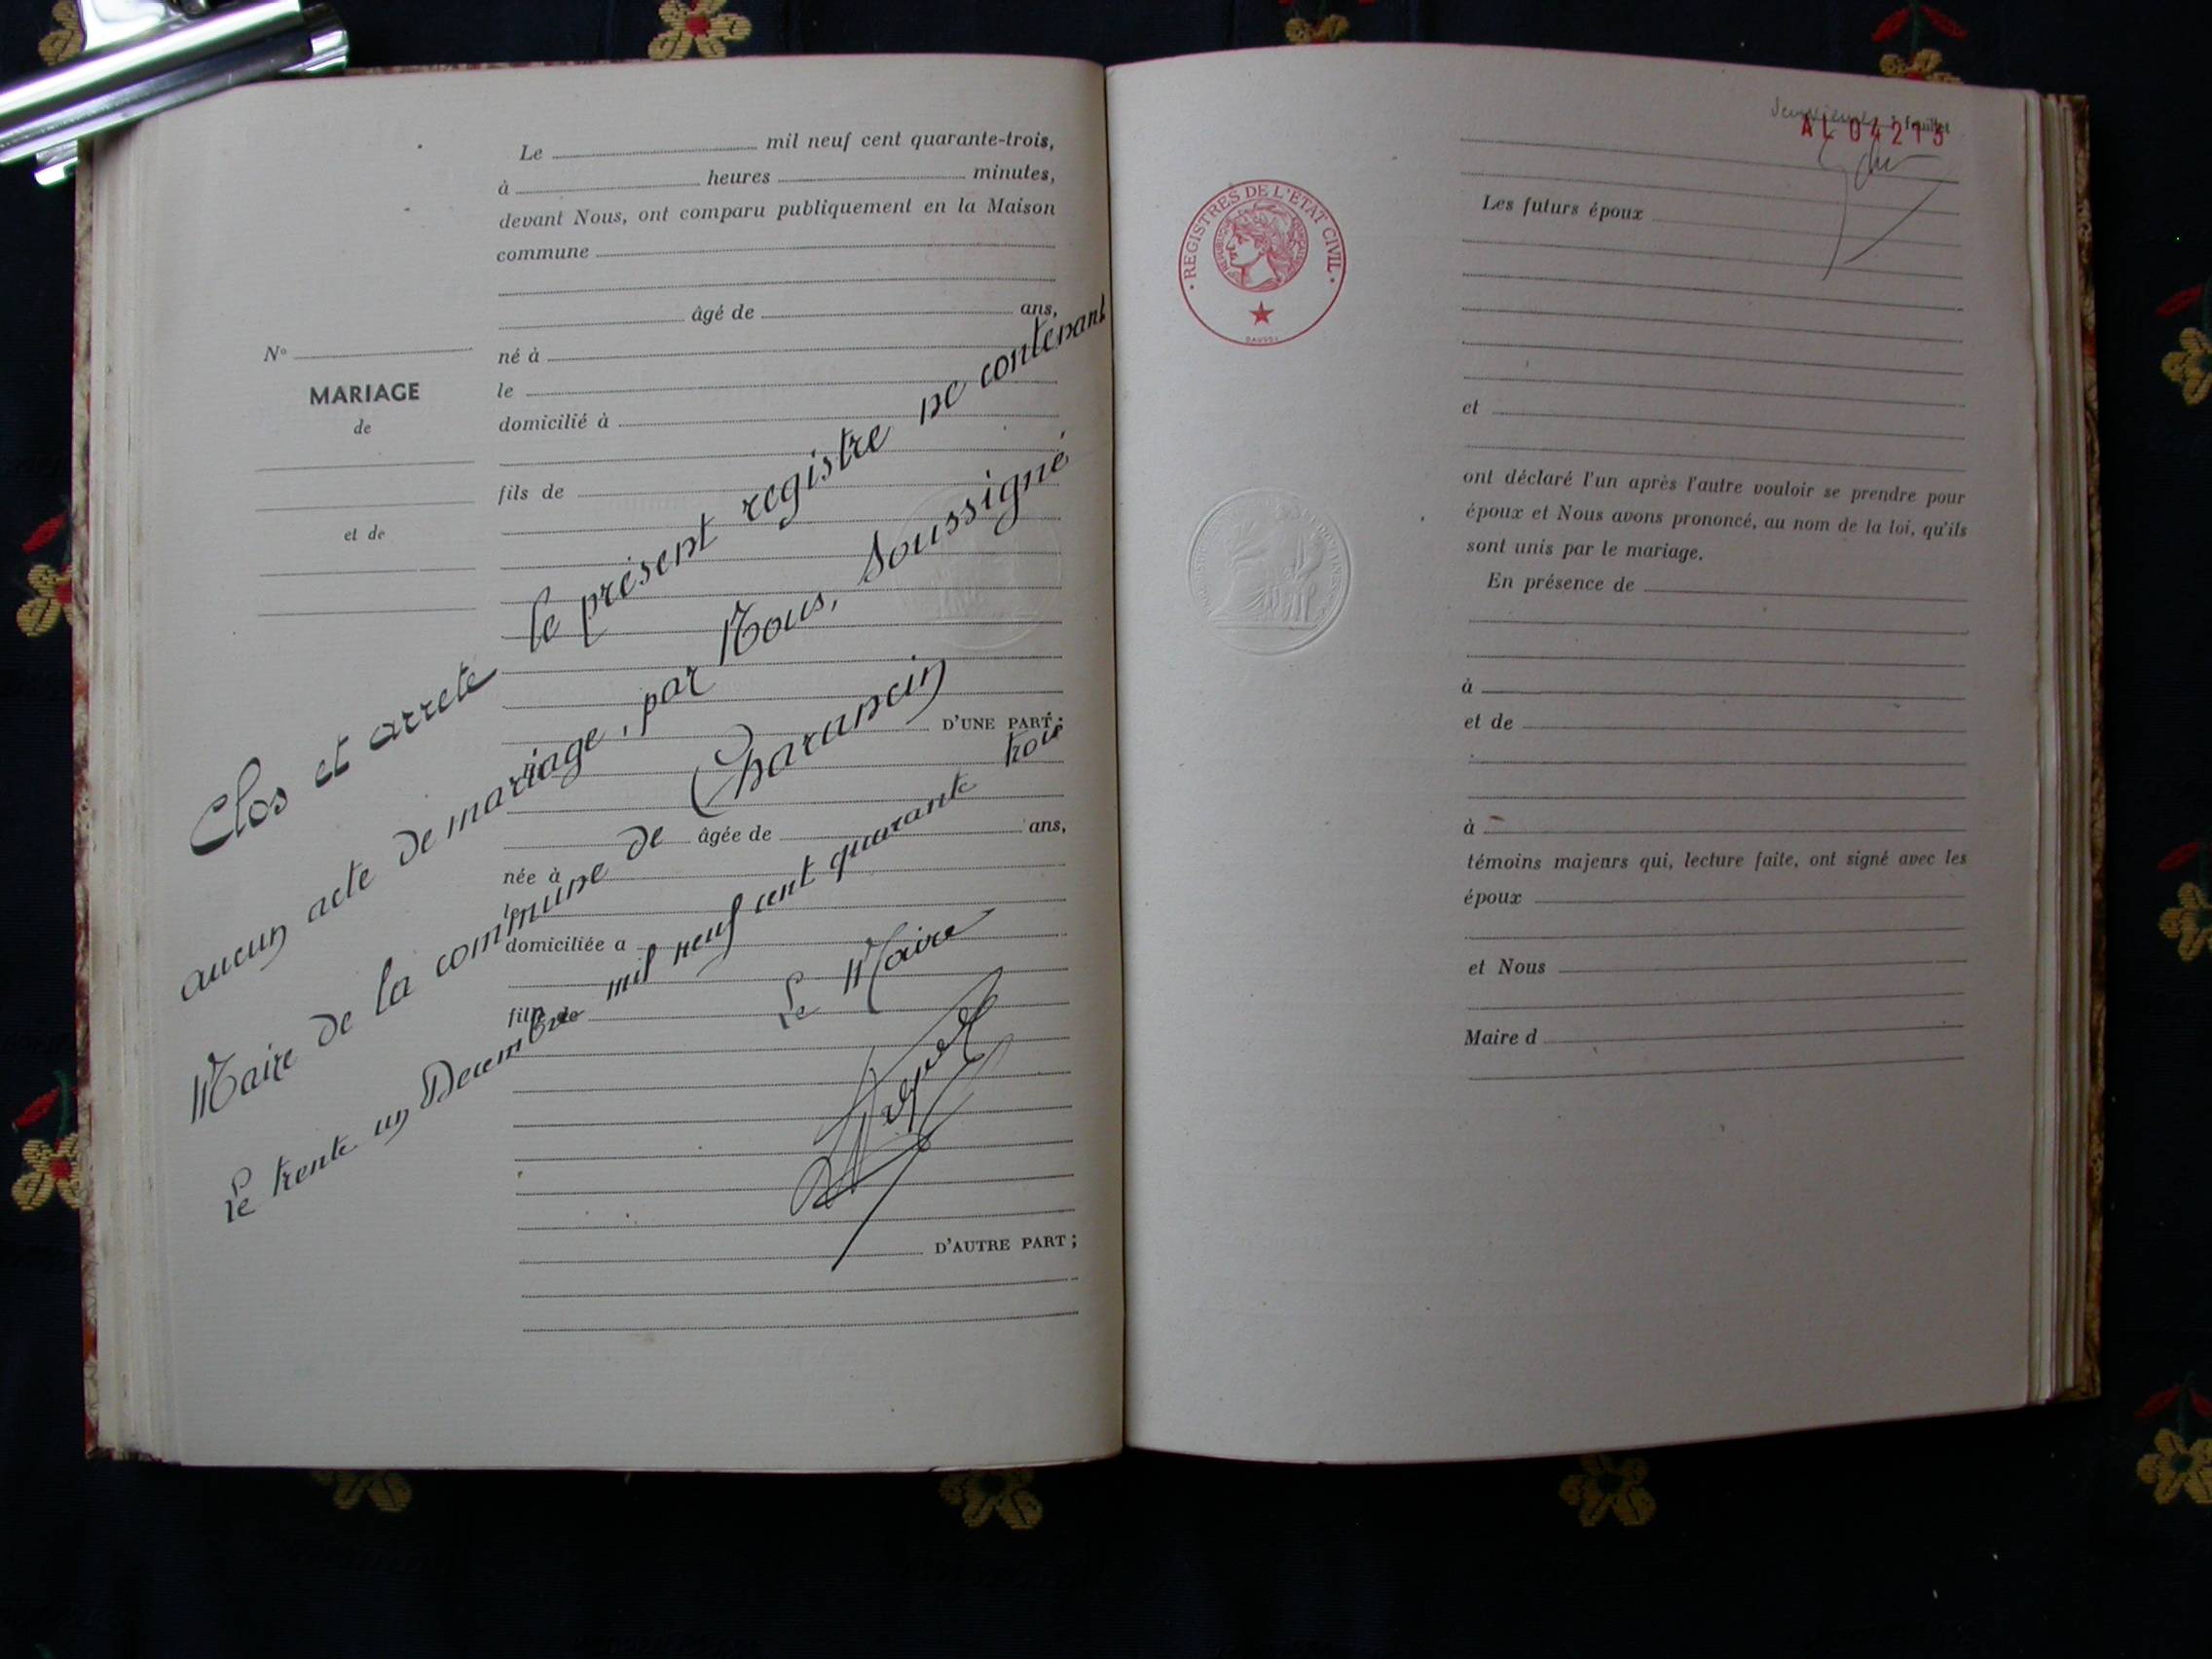 Le mil neuf cent quarante-trois,
à heures minutes,
devant Nous, ont comparu publiquement en la Maison
commune
âgé de ans,
né à
le
domicilié à
fils de
D'UNE PART;
âgée de ans,
née à
le
domiciliée a
fille de
D'AUTRE PART;
N°
MARIAGE
de
et de
Clos et arrete le présent registre ne contenant
aucun acte de mariage, par Nous, Soussigné
Maire de la commune de Charancin
Le trente un Decembre mil neuf cent quarante trois
Le Maire
feuillet
AL 04215
REGISTRES DE L'ETAT CIVIL
Les futurs époux
et
ont déclaré l'un après l'autre vouloir se prendre pour
époux et Nous avons prononcé, au nom de la loi, qu'ils
sont unis par le mariage.
En présence de
à
et de
à
témoins majeurs qui, lecture faite, ont signé avec les
époux
et Nous
Maire d